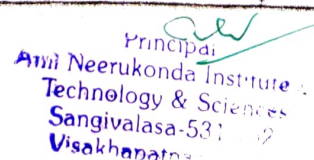 Principal
Anil Neerukonda Institute
Technology & Sciences
Sangivalasa-53
Visakhapatn